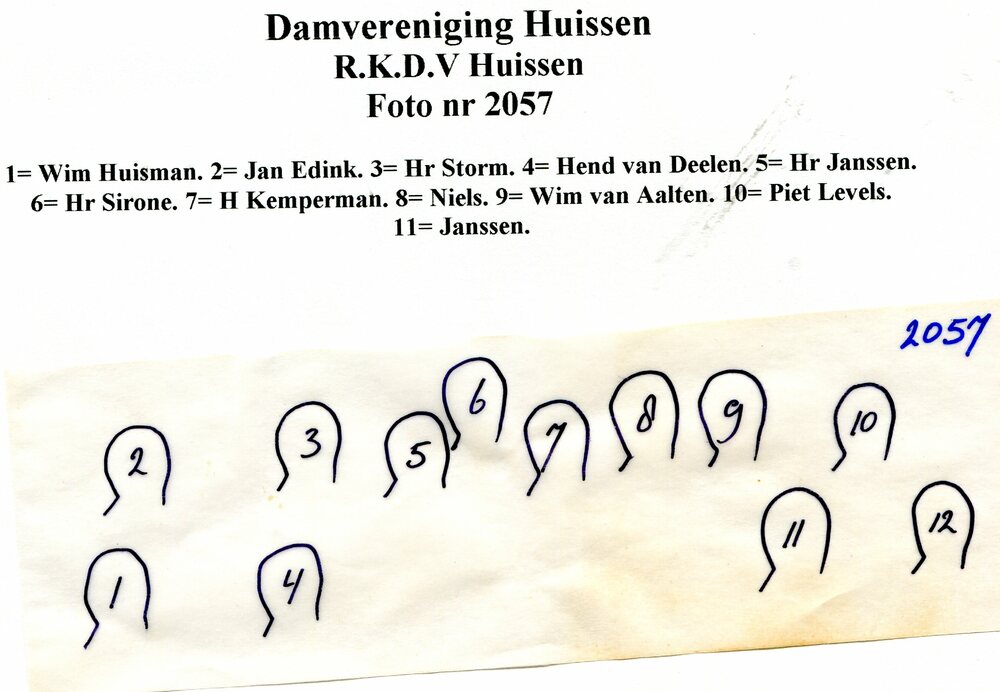 Damvereniging Huissen
R.K.D.V Huissen
Foto nr 2057
1= Wim Huisman. 2= Jan Edink. 3= Hr Storm. 4= Hend van Deelen. 5= Hr Janssen.
6= Hr Sirone. 7= H Kemperman. 8= Niels. 9= Wim van Aalten. 10= Piet Levels.
11= Janssen.
2057
2 3 5 6 7 8 9 10
1 4 11 12